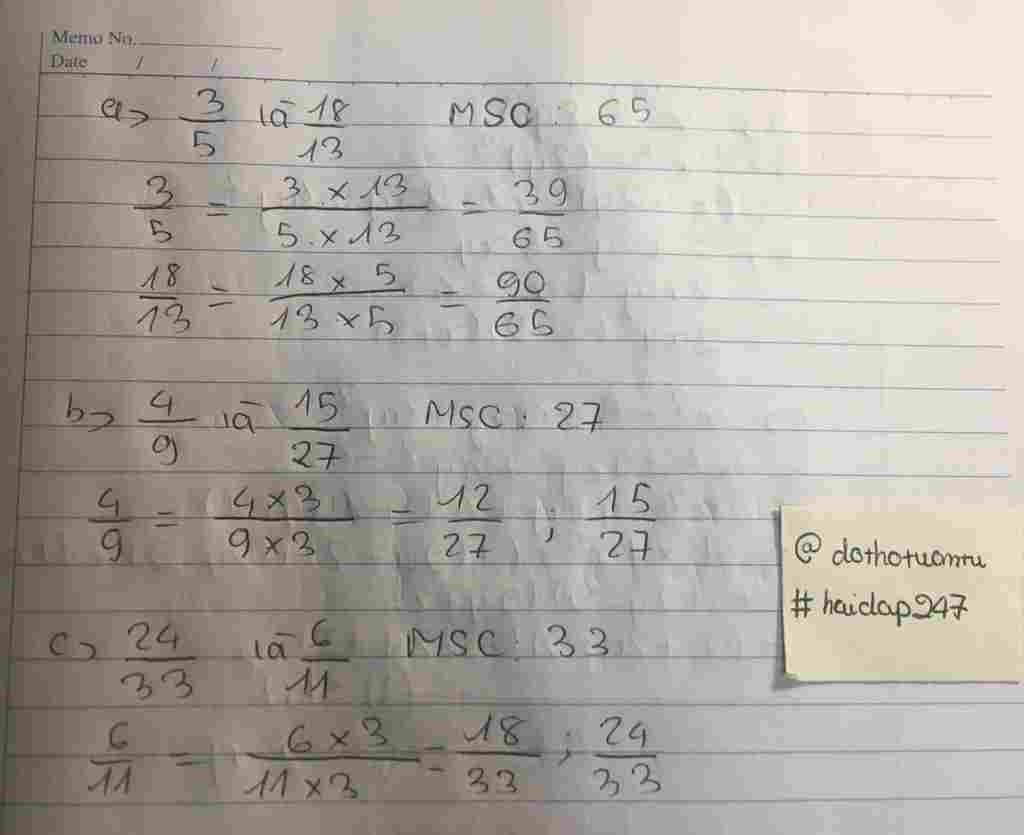 Memo No.
Date / /
a> 3/5 và 18/13 MSC : 65
3/5 = 3 x 13 / 5 x 13 = 39/65
18/13 = 18 x 5 / 13 x 5 = 90/65
b> 4/9 và 15/27 MSC : 27
4/9 = 4 x 3 / 9 x 3 = 12/27 ; 15/27
c> 24/33 và 6/11 MSC : 33
6/11 = 6 x 3 / 11 x 3 = 18/33 ; 24/33
# hoidap247